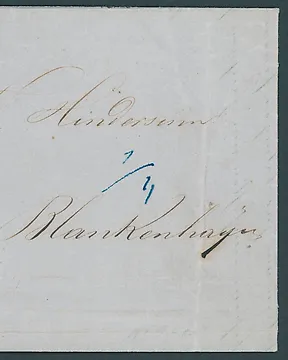 Hindersinn
1/4
Blankenhagen